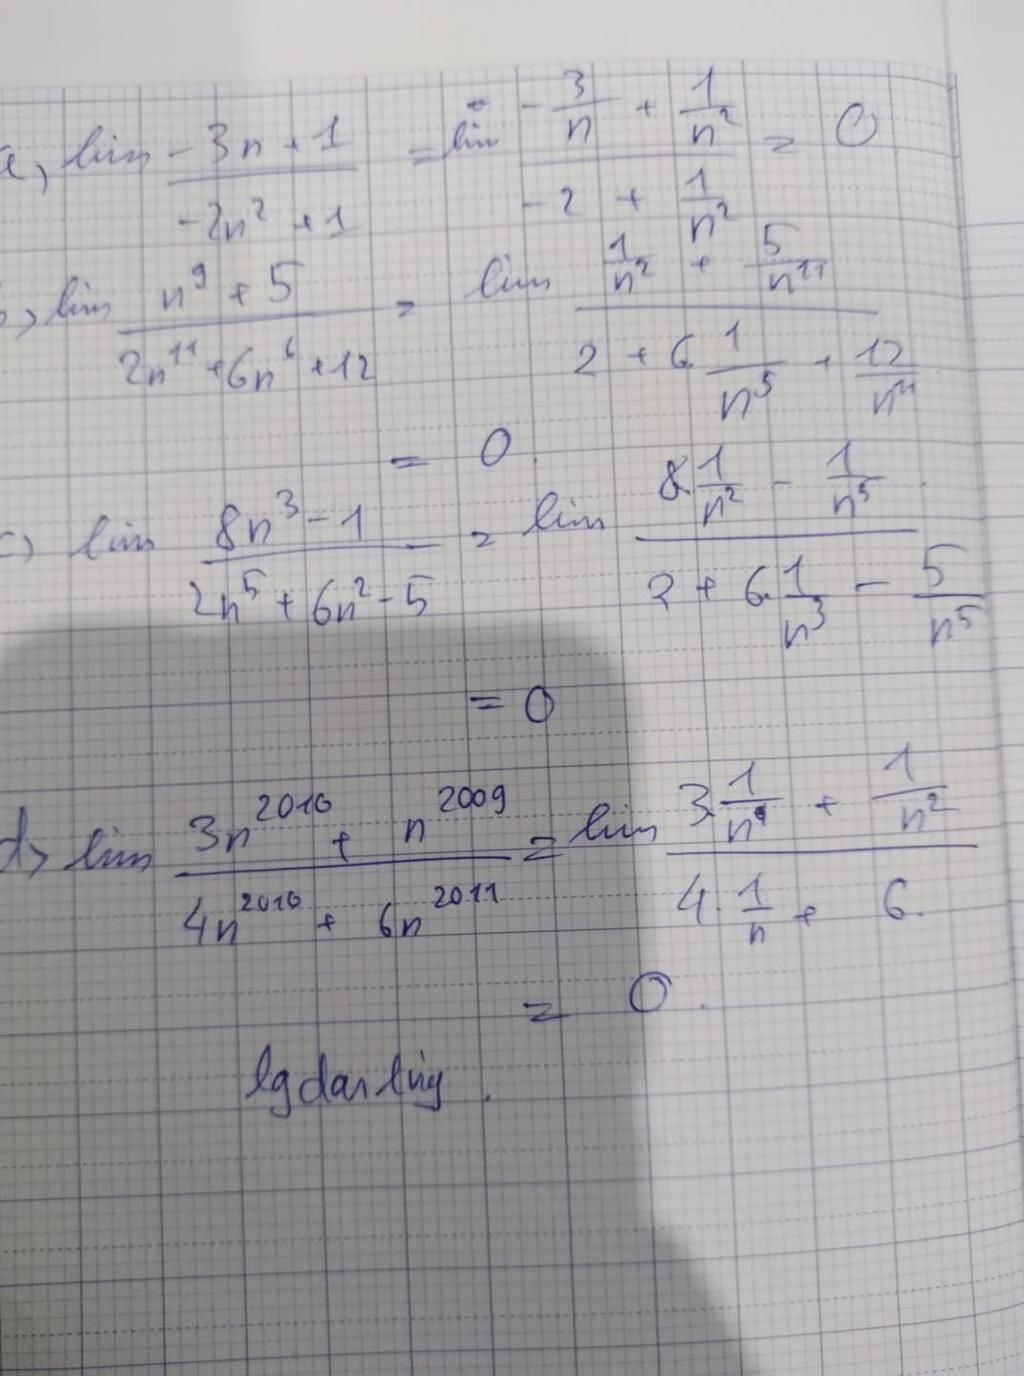 a, lim (-3n + 1)/(-2n² + 1) = lim (-3/n + 1/n²)/(-2 + 1/n²) = 0
b, lim (n⁹ + 5)/(2n¹¹ + 6n⁶ + 12) = lim (1/n² + 5/n¹¹)/(2 + 6.1/n⁵ + 12/n¹¹)
= 0.
c) lim (8n³ - 1)/(2n⁵ + 6n² - 5) = lim (8.1/n² - 1/n⁵)/(2 + 6.1/n³ - 5/n⁵)
= 0
d, lim (3n²⁰¹⁰ + n²⁰⁰⁹)/(4n²⁰¹⁰ + 6n²⁰¹¹) = lim (3.1/n + 1/n²)/(4.1/n + 6.)
= 0.
lgdarling.